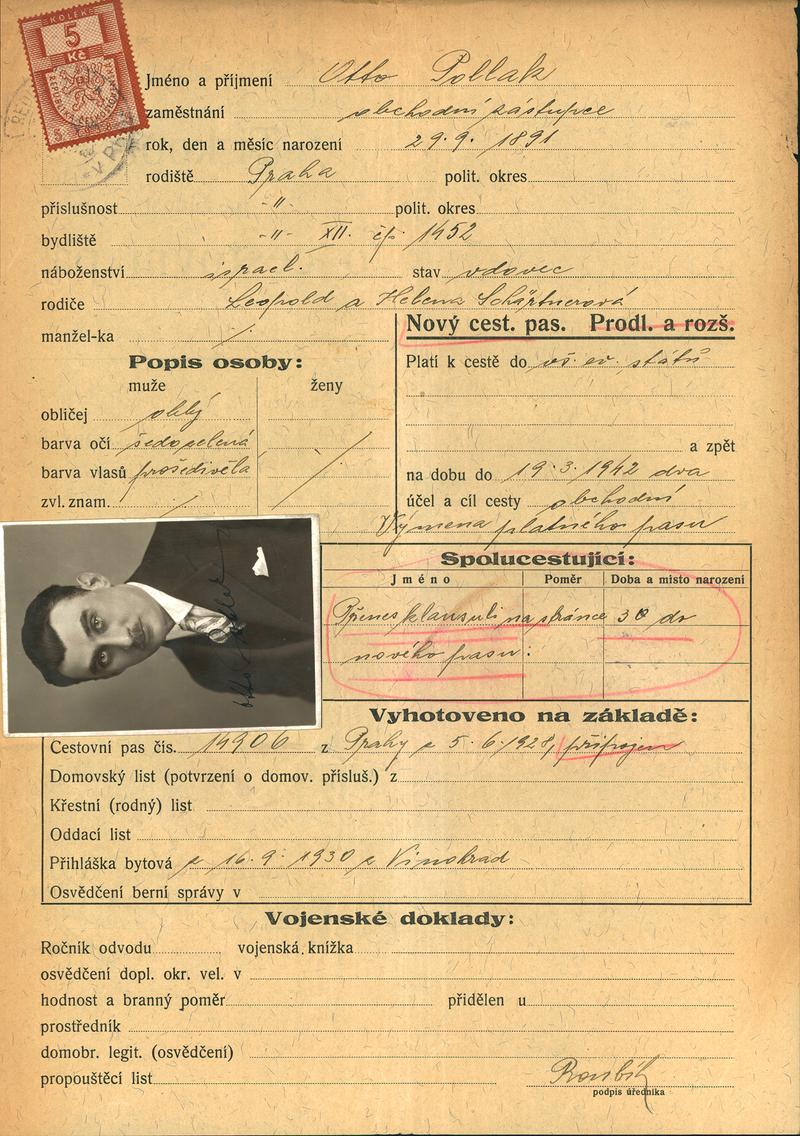 KOLEK
5
Kč
Jméno a příjmení Otto Pollak
zaměstnání obchodní zástupce
rok, den a měsíc narození 29. 9. 1891
rodiště Praha polit. okres
příslušnost -"- polit. okres
bydliště -"- XII. čp. 1452
náboženství israel. stav vdovec
rodiče Leopold a Helena Schärtnerová
manžel-ka /
Nový cest. pas. Prodl. a rozš.
Popis osoby:
muže ženy
obličej oblý
barva očí šedozelená
barva vlasů prošedivělá
zvl. znam. /
Platí k cestě do vš. ev. států
a zpět
na dobu do 19. 3. 1942 dva
účel a cíl cesty obchodní
Výměna platného pasu
Spolucestující:
Jméno Poměr Doba a místo narození
Přenes klausuli na stránce 30 do
nového pasu.
Vyhotoveno na základě:
Cestovní pas čís. 14906 z Prahy z 5. 6. 1928, připojen
Domovský list (potvrzení o domov. přísluš.) z
Křestní (rodný) list
Oddací list
Přihláška bytová z 16. 9. 1930 z Vinohrad
Osvědčení berní správy v
Vojenské doklady:
Ročník odvodu vojenská knížka
osvědčení dopl. okr. vel. v
hodnost a branný poměr přidělen u
prostředník
domobr. legit. (osvědčení)
propouštěcí list
podpis úředníka